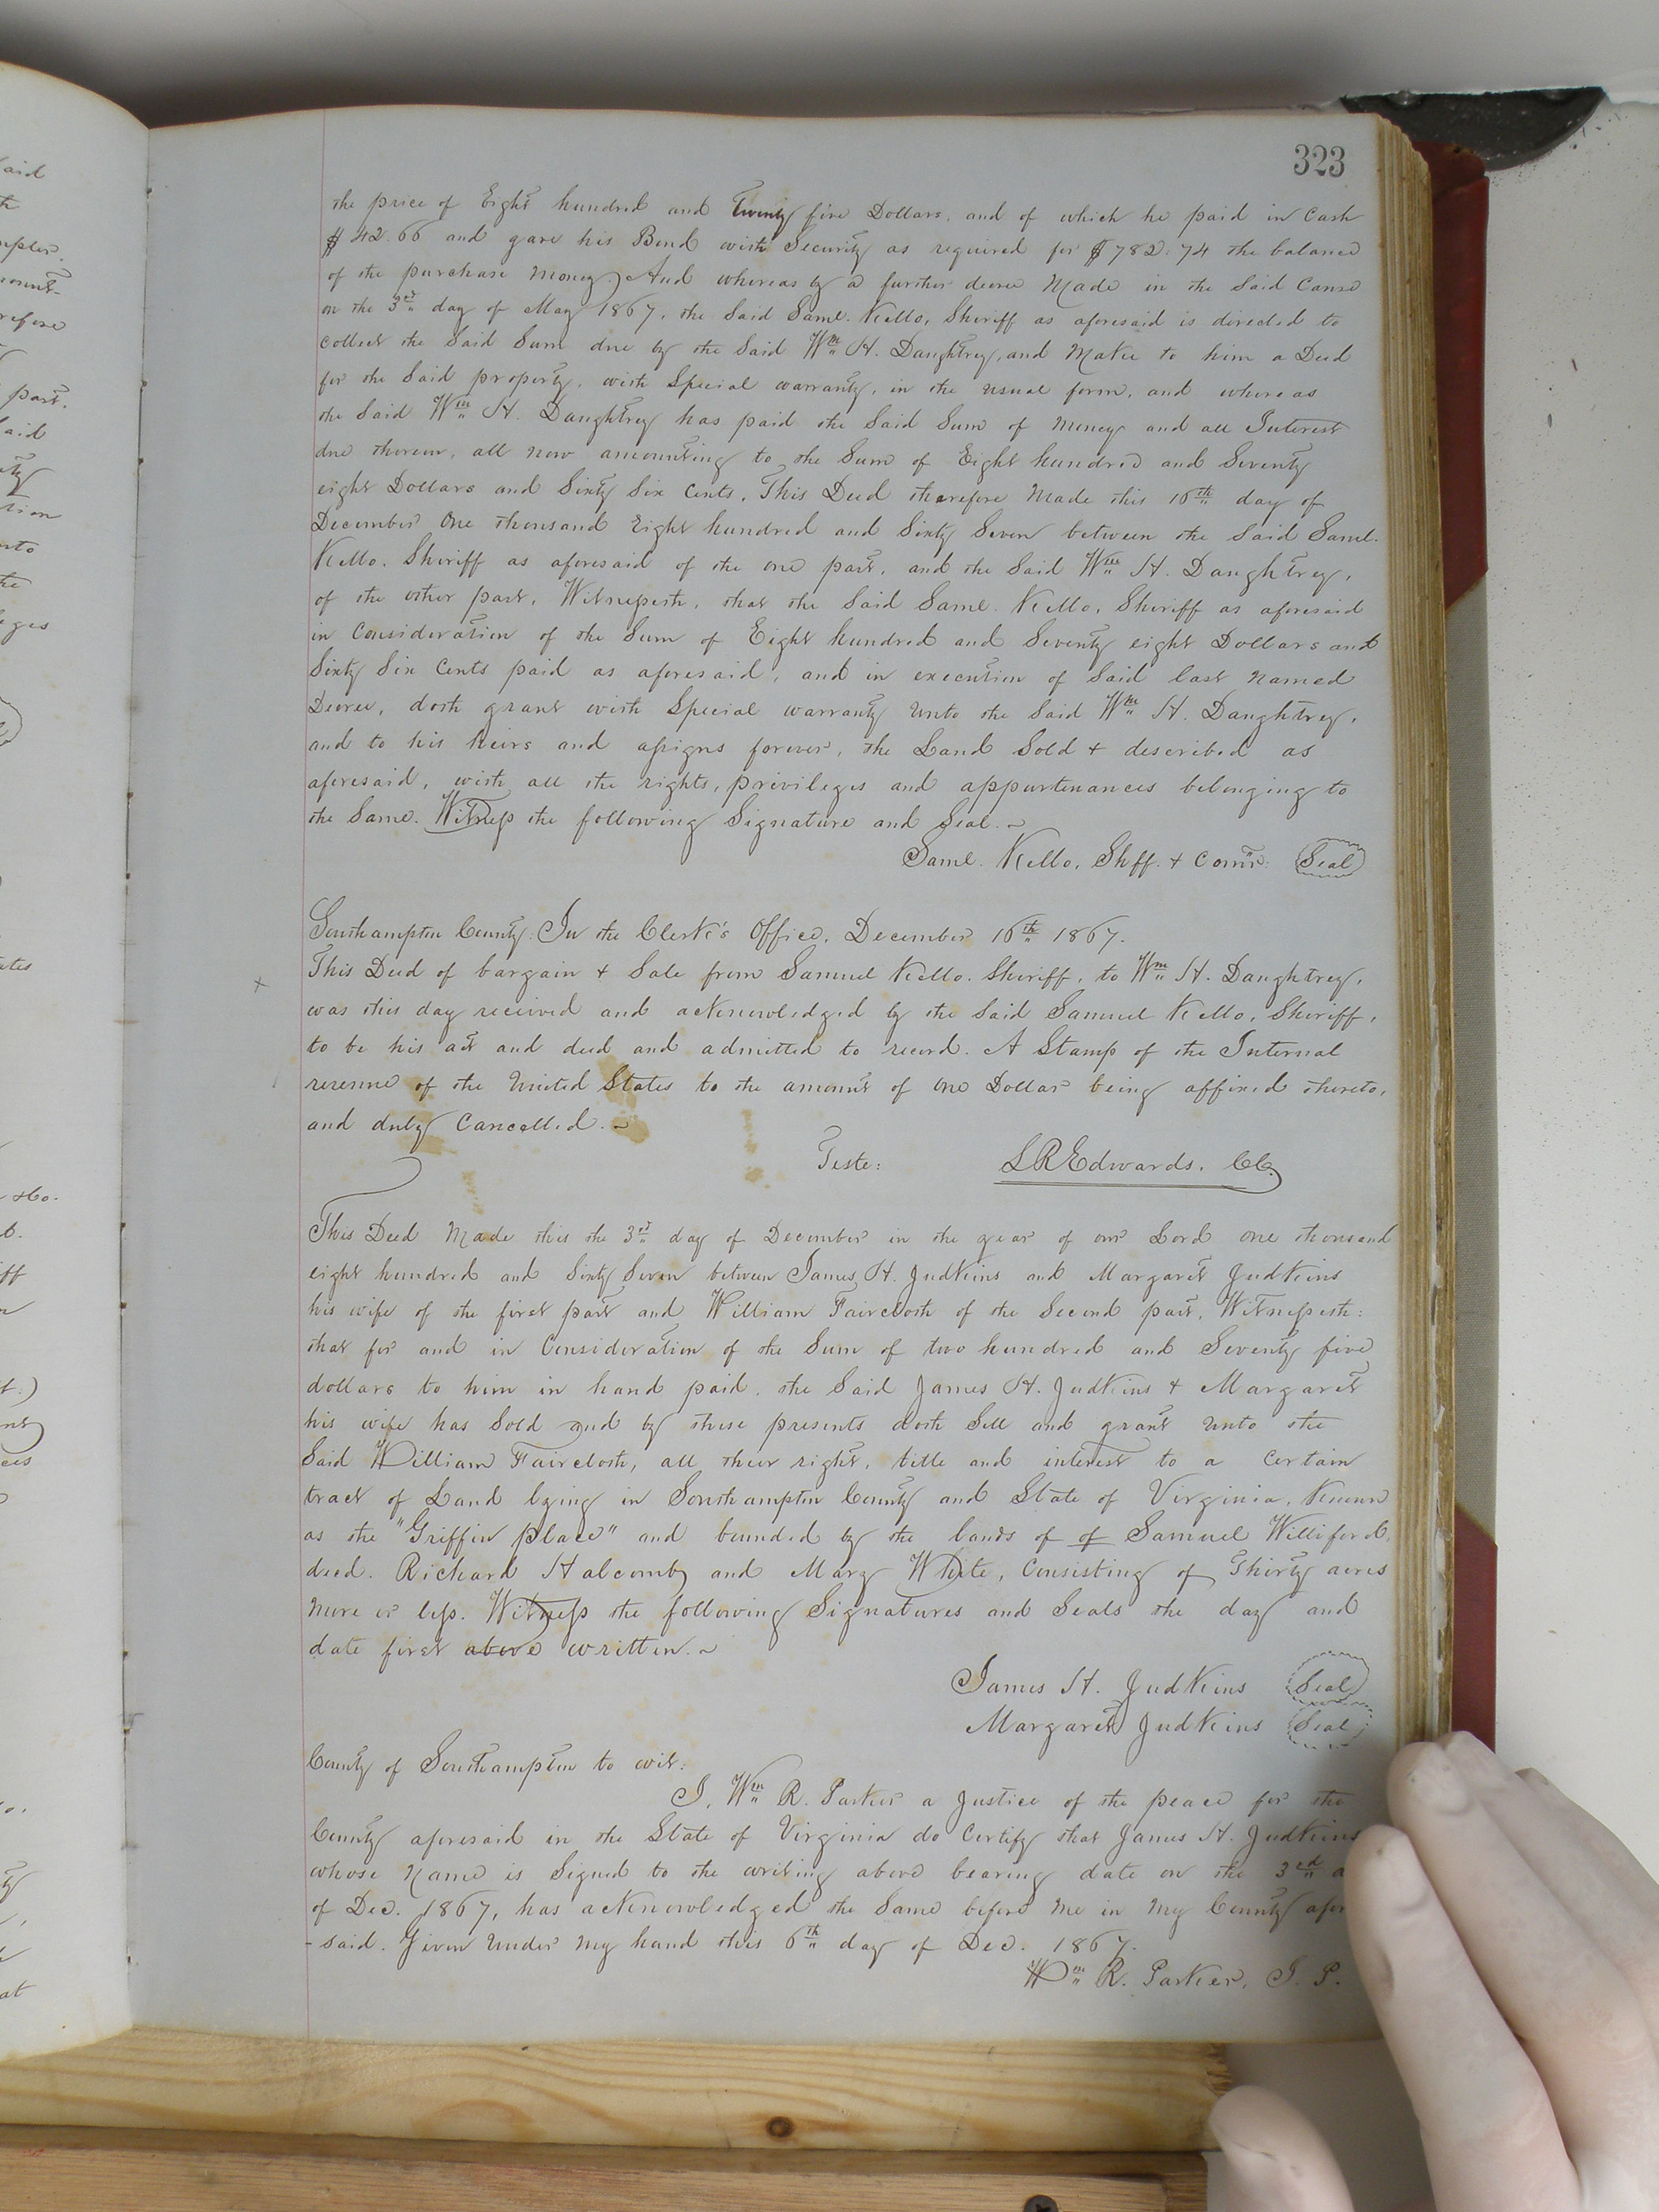 323
the price of Eight hundred and Twenty five Dollars, and of which he paid in Cash
$42.66 and gave his Bond with Security as required for $782:74 the balance
of the purchase money.) And whereas by a further decree Made in the Said Cause
on the 3rd day of May 1867, the Said Saml. Kello, Sheriff as aforesaid is directed to
collect the Said Sum due by the Said Wm H. Daughtrey, and Make to him a Deed
for the Said property, with Special warranty, in the usual form, and whereas
the Said Wm H. Daughtrey has paid the Said Sum of Money and all Interest
due thereon, all now amounting to the Sum of Eight hundred and Seventy
eight Dollars and Sixty Six Cents. This Deed therefore Made this 16th day of
December One thousand Eight hundred and Sixty Seven between the Said Saml.
Kello, Sheriff as aforesaid of the one part, and the Said Wm H. Daughtrey,
of the other part, Witnesseth, that the Said Saml. Kello, Sheriff as aforesaid
in Consideration of the Sum of Eight hundred and Seventy eight Dollars and
Sixty Six Cents paid as aforesaid, and in execution of Said last Named
Decree, doth grant with Special warranty Unto the Said Wm H. Daughtrey,
and to his heirs and assigns forever, the Land Sold + described as
aforesaid, with all the rights, privileges and appurtenances belonging to
the Same. Witness the following Signature and Seal.~
Saml. Kello, Shff. + Comr. Seal
Southampton County: In the Clerk's Office, December 16th 1867.
This Deed of bargain + Sale from Samuel Kello, Sheriff, to Wm H. Daughtrey,
x
was this day received and acknowledged by the Said Samuel Kello, Sheriff,
to be his act and deed and admitted to record. A Stamp of the Internal
revenue of the United States to the amount of One Dollar being affixed thereto,
and duly Cancelled.~
Teste: L R Edwards, CC.
This Deed Made this the 3rd day of December in the year of our Lord one thousand
eight hundred and Sixty Seven between James H. Judkins and Margaret Judkins
his wife of the first part and William Faircloth of the Second part, Witnesseth:
that for and in Consideration of the Sum of two hundred and Seventy five
dollars to him in hand paid, the Said James H. Judkins + Margaret
his wife has Sold and by these presents doth Sell and grant Unto the
Said William Faircloth, all their right, title and interest to a Certain
tract of Land lying in Southampton County and State of Virginia, Known
as the "Griffin place" and bounded by the lands of of Samuel Williford,
decd. Richard Halcomb and Mary White, Consisting of Thirty acres
More or less. Witness the following Signatures and Seals the day and
date first above written.~
James H. Judkins Seal
Margaret Judkins Seal
County of Southampton to wit:
I, Wm R. Parker a Justice of the peace for the
County aforesaid in the State of Virginia do Certify that James H. Judkins
whose Name is Signed to the writing above bearing date on the 3rd
of Dec. 1867, has acknowledged the Same before Me in My County afor
-said. Given Under My hand this 6th day of Dec. 1867.
Wm R. Parker, J. P.